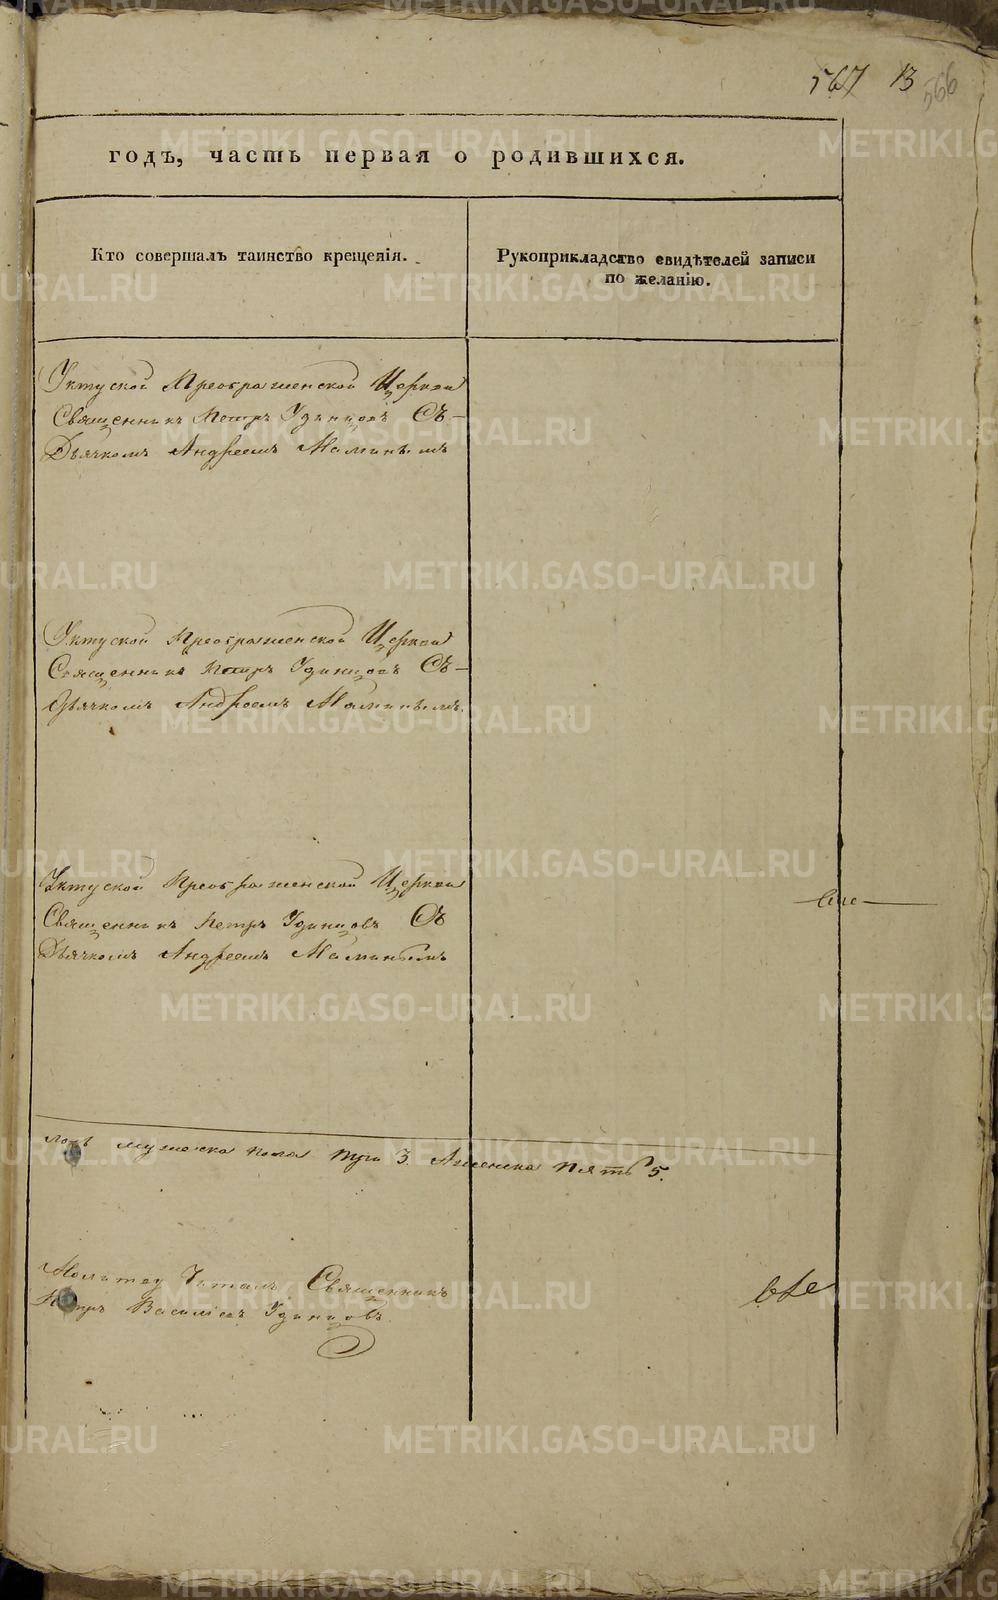 567 13 566
годъ, часть первая о родившихся.
Кто совершалъ таинство крещенія.
Рукоприкладство свидѣтелей записи
по желанію.
Уктуской Преображенской Церкви
Священникъ Петръ Удинцовъ Съ
Дьячкомъ Андреемъ Маминымъ
Уктуской Преображенской Церкви
Священникъ Петръ Удинцовъ Съ
Дьячкомъ Андреемъ Маминымъ.
Уктуской Преображенской Церкви
Священникъ Петръ Удинцовъ Съ
Дьячкомъ Андреемъ Маминымъ
мужеска пола три 3. Аженска пять 5.
Молитву Читалъ Священникъ
Петръ Васильевъ Удинцовъ.
METRIKI.GASO-URAL.RU